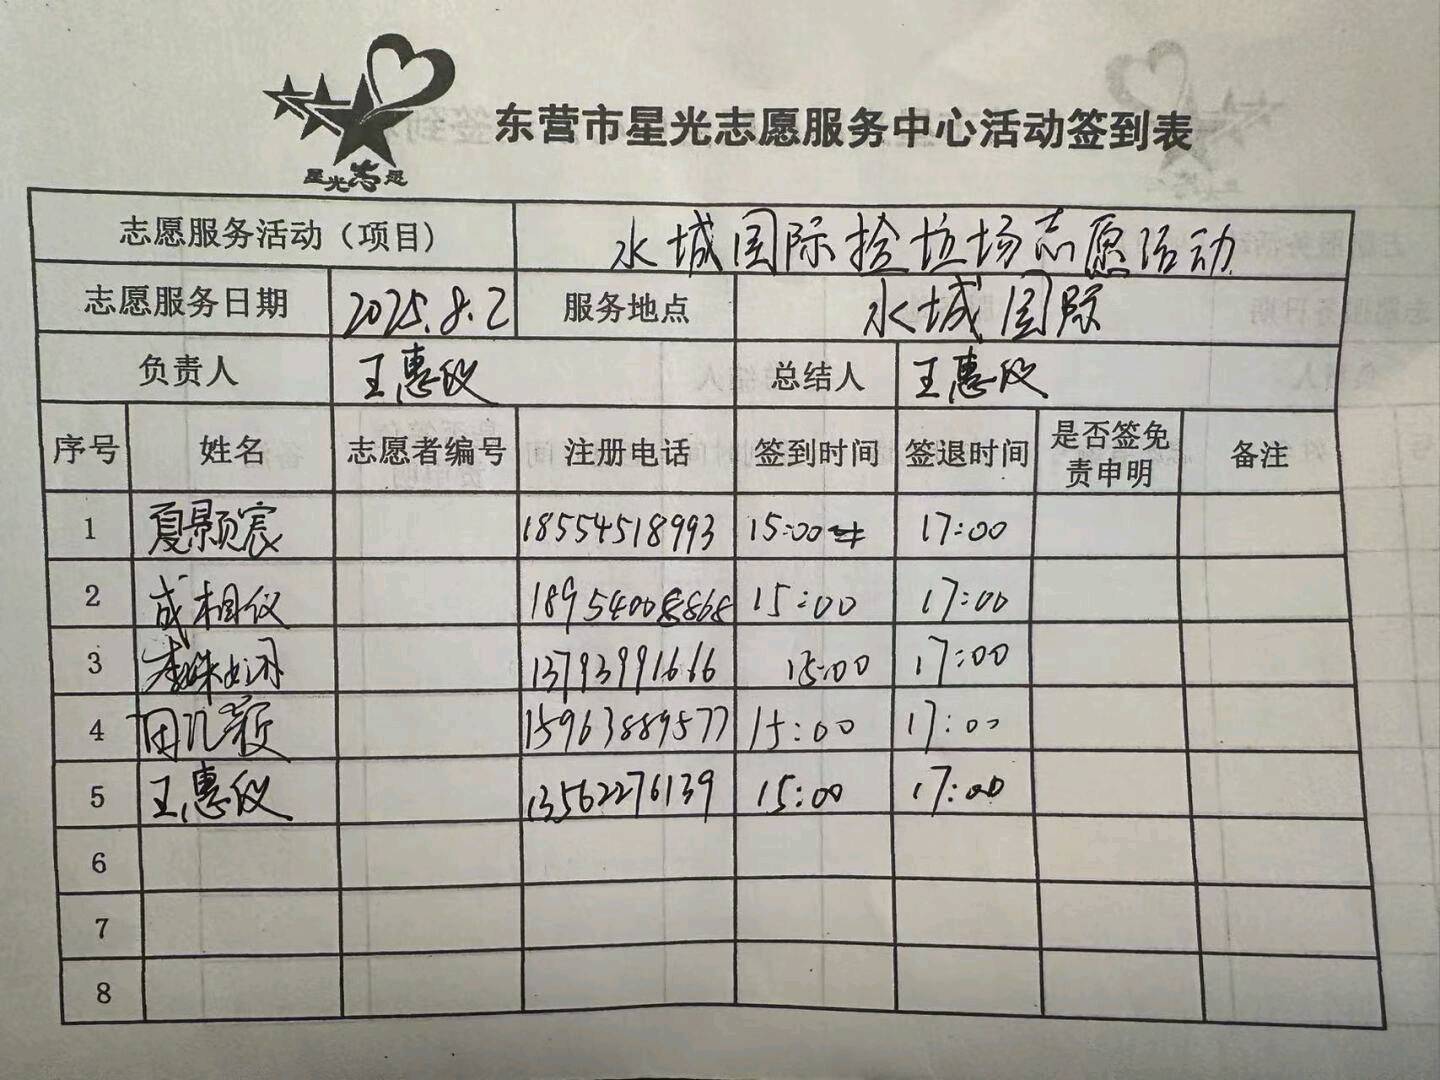 星光志愿
东营市星光志愿服务中心活动签到表
志愿服务活动（项目) 水城国际捡垃圾志愿活动
志愿服务日期 2025.8.2 服务地点 水城国际
负责人 王惠仪 总结人 王惠仪
序号 姓名 志愿者编号 注册电话 签到时间 签退时间 是否签免责申明 备注
1 夏颢宸 18554518993 15:00 17:00
2 成相仪 18954008868 15:00 17:00
3 13793991666 15:00 17:00
4 田 15963889577 15:00 17:00
5 王惠仪 13562276139 15:00 17:00
6
7
8